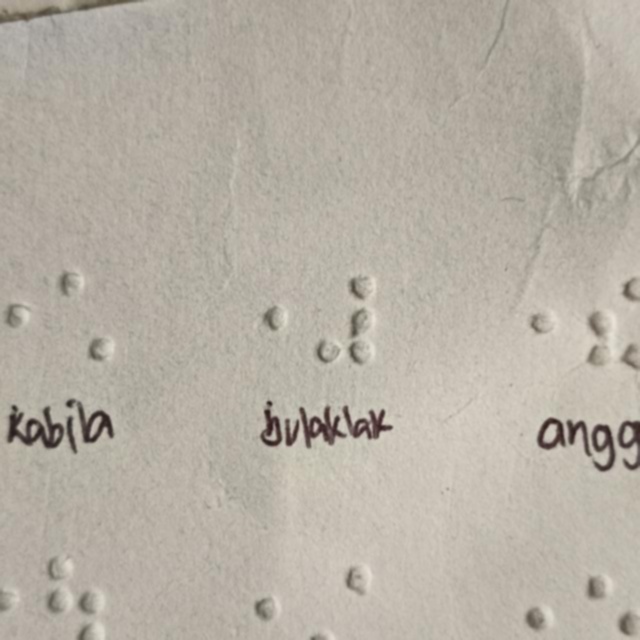 kabila bulaklak angg